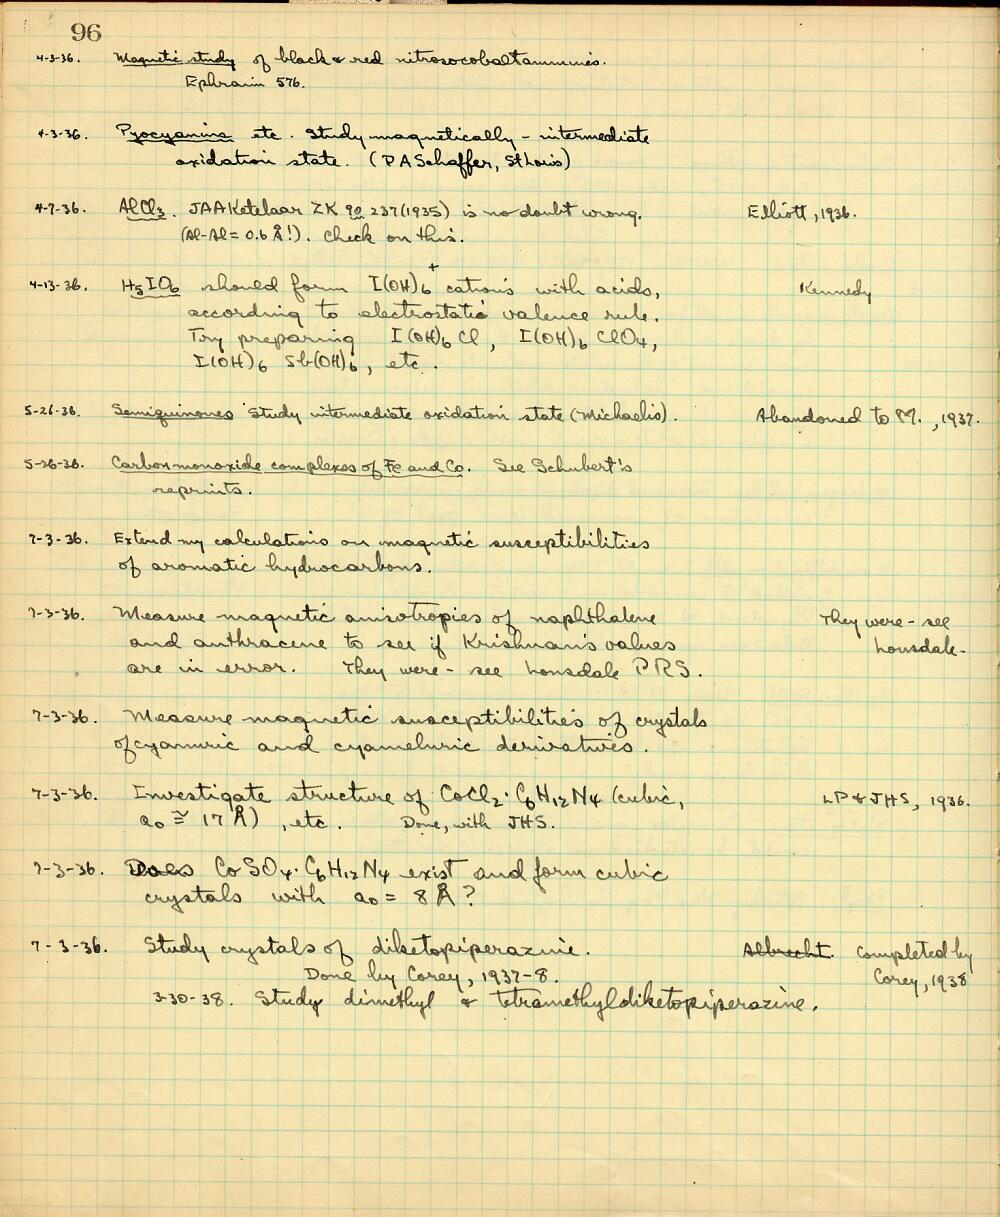 96
4-3-36. Magnetic study of black & red nitrosocobaltammines.
Ephraim 576.
4-3-36. Pyocyanine etc. Study magnetically - intermediate
oxidation state. (P A Schaffer, St Louis)
4-7-36. AlCl₃. JAA Ketelaar ZK 90 237 (1935) is no doubt wrong. Elliott, 1936.
(Al-Al = 0.6 Å!). Check on this.
4-13-36. H₅IO₆ should form I(OH)₆⁺ cations with acids, Kennedy
according to electrostatic valence rule.
Try preparing I(OH)₆Cl, I(OH)₆ClO₄,
I(OH)₆ Sb(OH)₆, etc.
5-26-36. Semiquinones Study intermediate oxidation state (Michaelis). Abandoned to M., 1937.
5-26-36. Carbon monoxide complexes of Fe and Co. See Schubert's
reprints.
7-3-36. Extend my calculations on magnetic susceptibilities
of aromatic hydrocarbons.
7-3-36. Measure magnetic anisotropies of naphthalene They were - see
and anthracene to see if Krishnan's values Lonsdale.
are in error. They were - see Lonsdale PRS.
7-3-36. Measure magnetic susceptibilities of crystals
of cyanuric and cyameluric derivatives.
7-3-36. Investigate structure of CoCl₂·C₆H₁₂N₄ (cubic, LP & JHS, 1936.
a₀ ≅ 17 Å), etc. Done, with JHS.
7-3-36. Does CoSO₄·C₆H₁₂N₄ exist and form cubic
crystals with a₀ = 8 Å?
7-3-36. Study crystals of diketopiperazine. Albrecht. Completed by
Done by Corey, 1937-8. Corey, 1938
3-30-38. Study dimethyl & tetramethyldiketopiperazine.